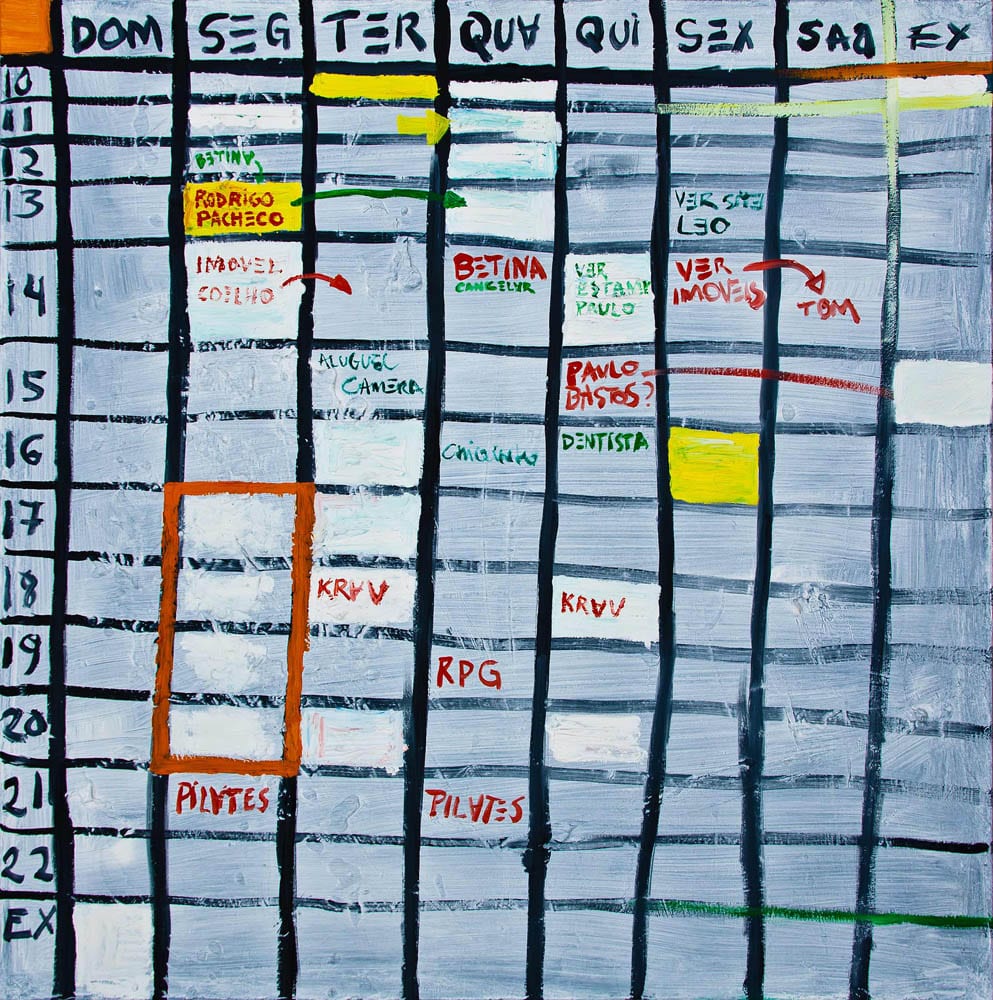 DOM SEG TER QUA QUI SEX SAB EX
10
11
12
BETINA
13
RODRIGO
PACHECO
VER SITE
LEO
14
IMOVEL
COELHO
BETINA
CANCELAR
VER
ESTAMP
PAULO
VER
IMOVEIS
TOM
15
ALUGUEL
CAMERA
PAULO
BASTOS?
16
CHIQUINHO
DENTISTA
17
18
KRAV
KRAV
19
RPG
20
21
PILATES
PILATES
22
EX